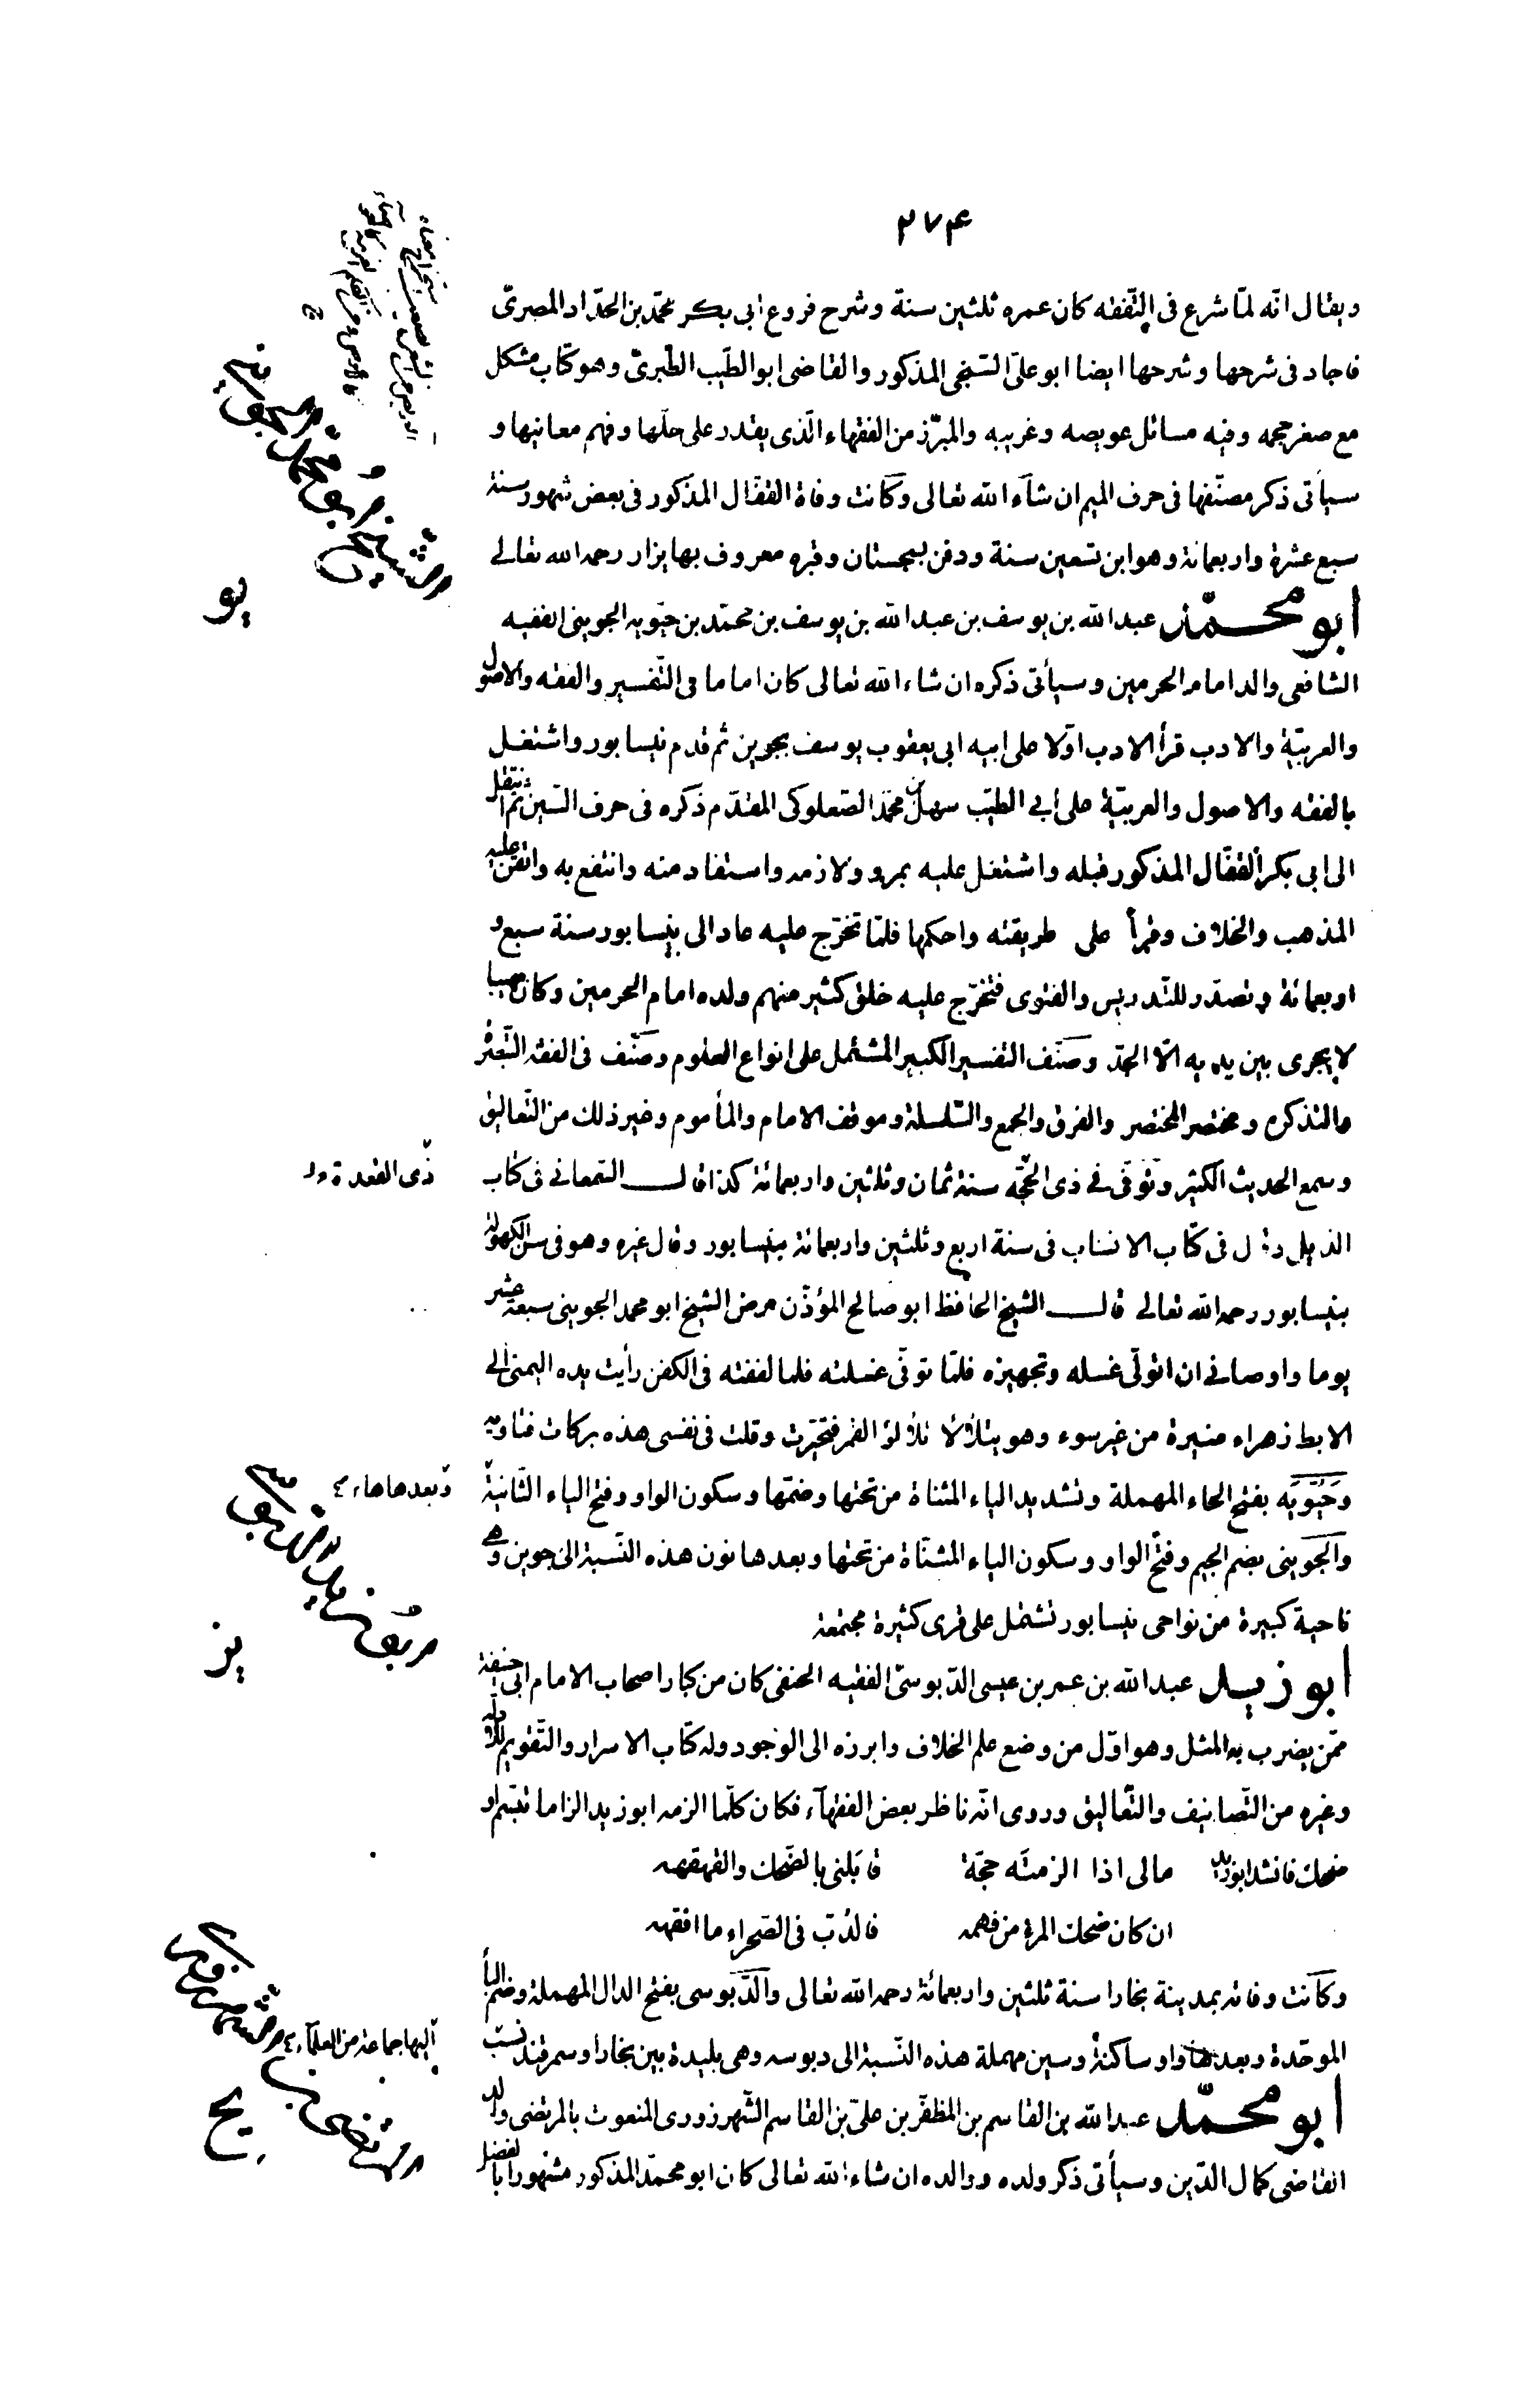 ٢٧٤
ويقال انّه لمّا شرع فى التّفقه كان عمره ثلثين سنة وشرح فروع ابى بكر محمّد بن الحدّاد المصرىّ
فاجاد فى شرحها وشرحها ايضا ابو علىّ السّنجى المذكور والقاضى ابو الطّيب الطّبرىّ وهو كتاب مشكل
مع صغر حجمه وفيه مسائل عويصه وغريبه والمبرّز من الفقهاء الّذى يقدر على حلّها وفهم معانيها و
سيأتى ذكر مصنّفها فى حرف الميم ان شآء الله تعالى وكانت وفاة القفّال المذكور فى بعض شهور سنة
سبع عشرة واربعمائة وهو ابن تسعين سنة ودفن بسجستان وقبره معروف بها يزار رحمه الله تعالے
ابو محمّد عبد الله بن يوسف بن عبد الله بن يوسف بن محمّد بن حيّويه الجوينى الفقيه
الشافعى والد امام الحرمين وسيأتى ذكره ان شاء الله تعالى كان اماما فى التّفسير والفقه والاصول
والعربيّة والادب قرأ الادب اوّلا على ابيه ابى يعقوب يوسف بجوين ثم قدم نيسابور واشتغل
بالفقه والاصول والعربيّة على أبے الطيّب سهل بن محمّد الصّعلوكى المقدّم ذكره فى حرف السّين ثمّ انتقل
الى ابى بكر القفّال المذكور قبله واشتغل عليه بمرو ولازمه واستفاد منه وانتفع به واتقن عليه
المذهب والخلاف وقرأ على طريقته واحكمها فلمّا تخرّج عليه عاد الى نيسابور سنة سبع و
اربعمائة وتصدّر للتّدريس والفتوى فتخرّج عليه خلق كثير منهم ولده امام الحرمين وكان مهيبا
لا يجرى بين يديه الّا الجدّ وصنّف التفسير الكبير المشتمل على انواع العلوم وصنّف فى الفقه التّبصرة
والتذكره ومختصر المختصر والفرق والجمع والسّلسلة وموقف الامام والمأموم وغير ذلك من التّعاليق
وسمع الحديث الكثير وتوفّى فے ذى الحجّه سنة ثمان وثلثين واربعمائة كذا قال السّمعانى فى كتاب
ذى القعدة
الذيل وقال فى كتاب الانساب فى سنة اربع وثلثين واربعمائة بنيسابور وقال غيره وهو فى سنّ الكهولة
بنيسابور رحمه الله تعالے قال الشيخ الحافظ ابو صالح المؤذّن مرض الشيخ ابو محمد الجوينى سبعة عشر
يوما واوصانے ان اتولّى غسله وتجهيزه فلمّا توفّى غسلته فلما لففته فى الكفن رأيت يده اليمنى الے
الابط زهراء منيرة من غير سوء وهو يتلألأ تلألؤ القمر فتحيّرت وقلت فى نفسى هذه بركات فتاويه
وحيّويه بفتح الحاء المهملة وتشديد الياء المثناة من تحتها وضمّها وسكون الواو وفتح الياء الثّانية
وبعدها هاء
والجوينى بضم الجيم وفتح الواو وسكون الياء المثنّاة من تحتها وبعدها نون هذه النّسبة الى جوين وهے
ناحية كبيرة من نواحى نيسابور تشتمل على قرى كثيرة مجتمعة
ابو زيد عبد الله بن عمر بن عيسى الدّبوسىّ الفقيه الحنفى كان من كبار اصحاب الامام ابى حنيفة
ممّن يضرب به المثل وهو اوّل من وضع علم الخلاف وابرزه الى الوجود وله كتاب الاسرار والتّقويم للادلّة
وغيره من التّصانيف والتّعاليق وروى انّه ناظر بعض الفقهآء فكان كلّما الزمه ابو زيد الزاما تبسّم او
ضحك فانشد ابو زيد مالى اذا الزمته حجّة قابلنى بالضّحك والقهقهه
ان كان ضحك المرء من فهمه فالدّبّ فى الصّحراء ما افقهه
وكانت وفاته بمدينة بخارا سنة ثلثين واربعمائة رحمه الله تعالى والدّبوسى بفتح الدال المهملة وضمّ البأ
الموحّدة وبعدها واو ساكنة وسين مهملة هذه النّسبة الى دبوسه وهى بليدة بين بخارا وسمرقند نسب
اليها جماعة من العلمآء
ابو محمّد عبد الله بن القاسم بن المظفّر بن علىّ بن القاسم الشّهرزورى المنعوت بالمرتضى والد
القاضى كمال الدّين وسيأتى ذكر ولده ووالده ان شاء الله تعالى كان ابو محمّد المذكور مشهورا بالفضل
يو
يز
يح